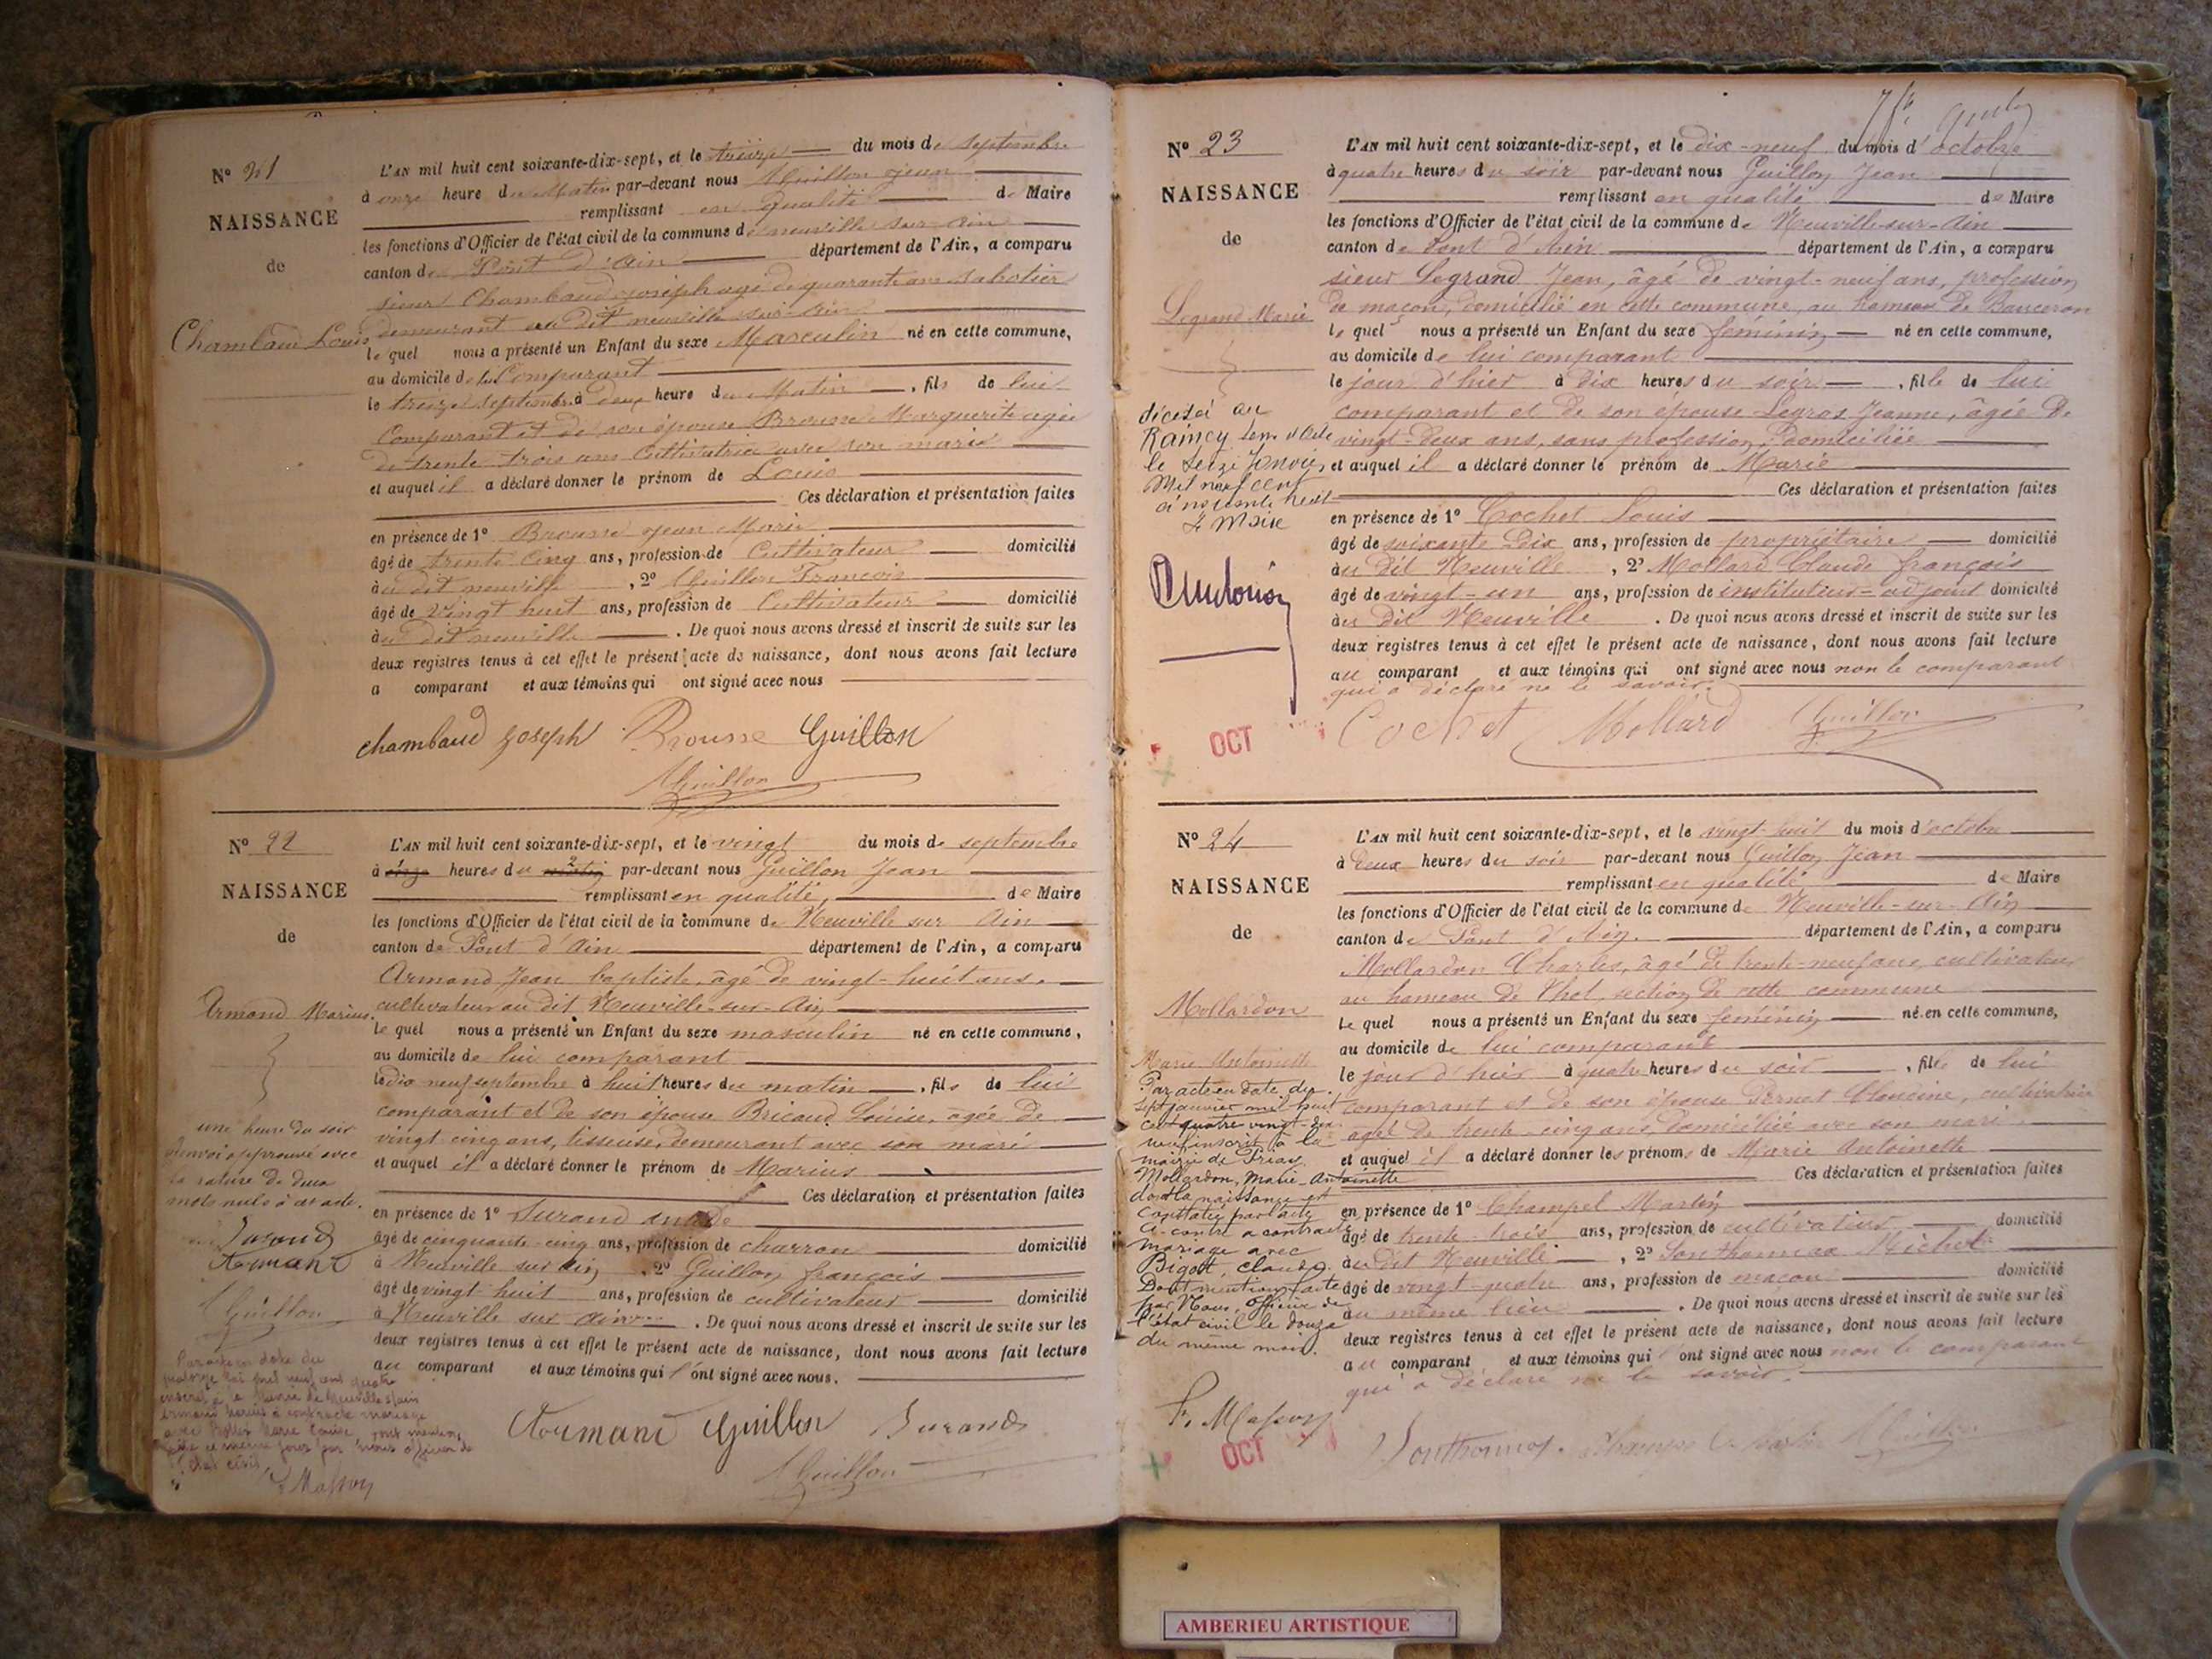 N° 21
NAISSANCE
de
Chambaud Louis
L'AN mil huit cent soixante-dix-sept, et le treize du mois de septembre
à onze heure du Matin par-devant nous Guillon jean
remplissant en qualité de Maire
les fonctions d'Officier de l'état civil de la commune de neuville sur ain
canton de Pont d'Ain département de l'Ain, a comparu
sieur Chambaud joseph agé de quarante ans sabotier
demeurant au dit neuville sur ain
le quel nous a présenté un Enfant du sexe Masculin né en cette commune,
au domicile de lui Comparant
le treize septembre à deux heure du Matin, fils de lui
Comparant et de son épouse Brousse Marguerite agée
de trente trois ans Cultivatrice avec son marie
et auquel il a déclaré donner le prénom de Louis
Ces déclaration et présentation faites
en présence de 1° Brousse jean Marie
âgé de trente cinq ans, profession de Cultivateur domicilié
à au dit neuville, 2° Guillon François
âgé de Vingt huit ans, profession de Cultivateur domicilié
à au dit neuville. De quoi nous avons dressé et inscrit de suite sur les
deux registres tenus à cet effet le présent acte de naissance, dont nous avons fait lecture
a comparant et aux témoins qui ont signé avec nous
chambaud joseph Brousse Guillon
Guillon
N° 22
NAISSANCE
de
Armand Marius.
une heure du soir
Renvoi approuvé avec
la rature de deux
mots nuls à cet acte.
Durand
Armand
Guillon
L'AN mil huit cent soixante-dix-sept, et le vingt du mois de septembre
à onze heures du matin par-devant nous Guillon Jean
remplissant en qualité, de Maire
les fonctions d'Officier de l'état civil de la commune de Neuville sur Ain
canton de Pont d'Ain département de l'Ain, a comparu
Armand Jean baptiste, âgé de vingt-huit ans,
cultivateur au dit Neuville-sur-Ain
le quel nous a présenté un Enfant du sexe masculin né en cette commune,
au domicile de lui comparant
le dix-neuf septembre à huit heures du matin, fils de lui
comparant et de son épouse Bricaud Louise, agée de
vingt cinq ans, tisseuse, demeurant avec son mari
et auquel il a déclaré donner le prénom de Marius
Ces déclaration et présentation faites
en présence de 1° Durand
âgé de cinquante-cinq ans, profession de charron domicilié
à Neuville sur Ain, 2° Guillon françois
âgé de vingt-huit ans, profession de cultivateur domicilié
à Neuville sur Ain. De quoi nous avons dressé et inscrit de suite sur les
deux registres tenus à cet effet le présent acte de naissance, dont nous avons fait lecture
au comparant et aux témoins qui l'ont signé avec nous.
Armand Guillon Durand
Guillon
Par acte en date du
inscrit à la Mairie de Neuville s/ain
Armand Marius a contracté mariage
avec Marie Louise, dont mention
faite le même jour par nous officier de
l'état civil
F. Masson
N° 23
NAISSANCE
de
Legrand Marie
décédée au
Raincy Seine et Oise
le seize Janvier
Mil neuf cent
soixante neuf
Le Maire
L'AN mil huit cent soixante-dix-sept, et le dix-neuf du mois d'octobre
à quatre heures du soir par-devant nous Guillon Jean
remplissant en qualité de Maire
les fonctions d'Officier de l'état civil de la commune de Neuville-sur-Ain
canton de Pont d'Ain département de l'Ain, a comparu
sieur Legrand Jean, âgé de vingt-neuf ans, profession
de maçon, domicilié en cette commune, au hameau de Bauceron
le quel nous a présenté un Enfant du sexe féminin né en cette commune,
au domicile de lui comparant
le jour d'hier à dix heures du soir, fille de lui
comparant et de son épouse Legros Jeanne, âgée de
vingt-deux ans, sans profession, domiciliée
et auquel il a déclaré donner le prénom de Marie
Ces déclaration et présentation faites
en présence de 1° Cochet Louis
âgé de soixante dix ans, profession de propriétaire domicilié
à au dit Neuville, 2° Mollard Claude françois
âgé de vingt-un ans, profession de instituteur-adjoint domicilié
à au dit Neuville. De quoi nous avons dressé et inscrit de suite sur les
deux registres tenus à cet effet le présent acte de naissance, dont nous avons fait lecture
au comparant et aux témoins qui ont signé avec nous non le comparant
qui a déclaré ne le savoir.
Cochet Mollard Guillon
OCT
N° 24
NAISSANCE
de
Mollardon
Marie Antoinette
Par acte en date du
sept janvier mil huit
cent quatre vingt-dix
neuf inscrit à la
mairie de
Mollardon, Marie-Antoinette
dont la naissance est
constatée par l'acte
ci-contre a contracté
mariage avec
Bigot, Claude.
Dont mention faite
par Nous, Officier de
l'état civil le douze
du même mois.
F. Masson
OCT
L'AN mil huit cent soixante-dix-sept, et le vingt-huit du mois d'octobre
à deux heures du soir par-devant nous Guillon Jean
remplissant en qualité de Maire
les fonctions d'Officier de l'état civil de la commune de Neuville-sur-Ain
canton de Pont d'Ain. département de l'Ain, a comparu
Mollardon Charles, âgé de trente-neuf ans, cultivateur
au hameau de Thol, section de cette commune
le quel nous a présenté un Enfant du sexe féminin né en cette commune,
au domicile de lui comparant
le jour d'hier à quatre heures du soir, fille de lui
comparant et de son épouse Pernet Claudine, cultivatrice
agée de trente-cinq ans, domiciliée avec son mari
et auquel il a déclaré donner les prénoms de Marie Antoinette
Ces déclaration et présentation faites
en présence de 1° Champel Martin
âgé de trente-trois ans, profession de cultivateur domicilié
à au dit Neuville, 2° Southonnax Michel
âgé de vingt-quatre ans, profession de maçon domicilié
au même lieu. De quoi nous avons dressé et inscrit de suite sur les
deux registres tenus à cet effet le présent acte de naissance, dont nous avons fait lecture
au comparant et aux témoins qui ont signé avec nous non le comparant
qui a déclaré ne le savoir.
Guillon
AMBERIEU ARTISTIQUE